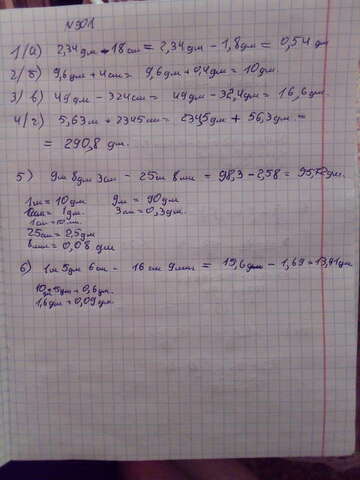 №901
1/а) 2,34 дм - 18 см = 2,34 дм - 1,8 дм = 0,54 дм
2/б) 9,6 дм + 4 см = 9,6 дм + 0,4 дм = 10 дм.
3/в) 49 дм - 324 см = 49 дм - 32,4 дм = 16,6 дм.
4/г) 5,63 м + 2345 см = 234,5 дм + 56,3 дм =
= 290,8 дм.
5) 9м 8дм 3см - 25 см 8 мм = 98,3 - 2,58 = 95,72 дм.
1м = 10 дм 9м = 90 дм
1дм. 3см = 0,3 дм.
1см = 10 мм.
25см = 2,5 дм
8мм = 0,08 дм
6) 1м 5 дм 6 см - 16 см 9мм = 15,6 дм - 1,69 = 13,91 дм
0,6 дм.
1,6 дм + 0,09 дм.